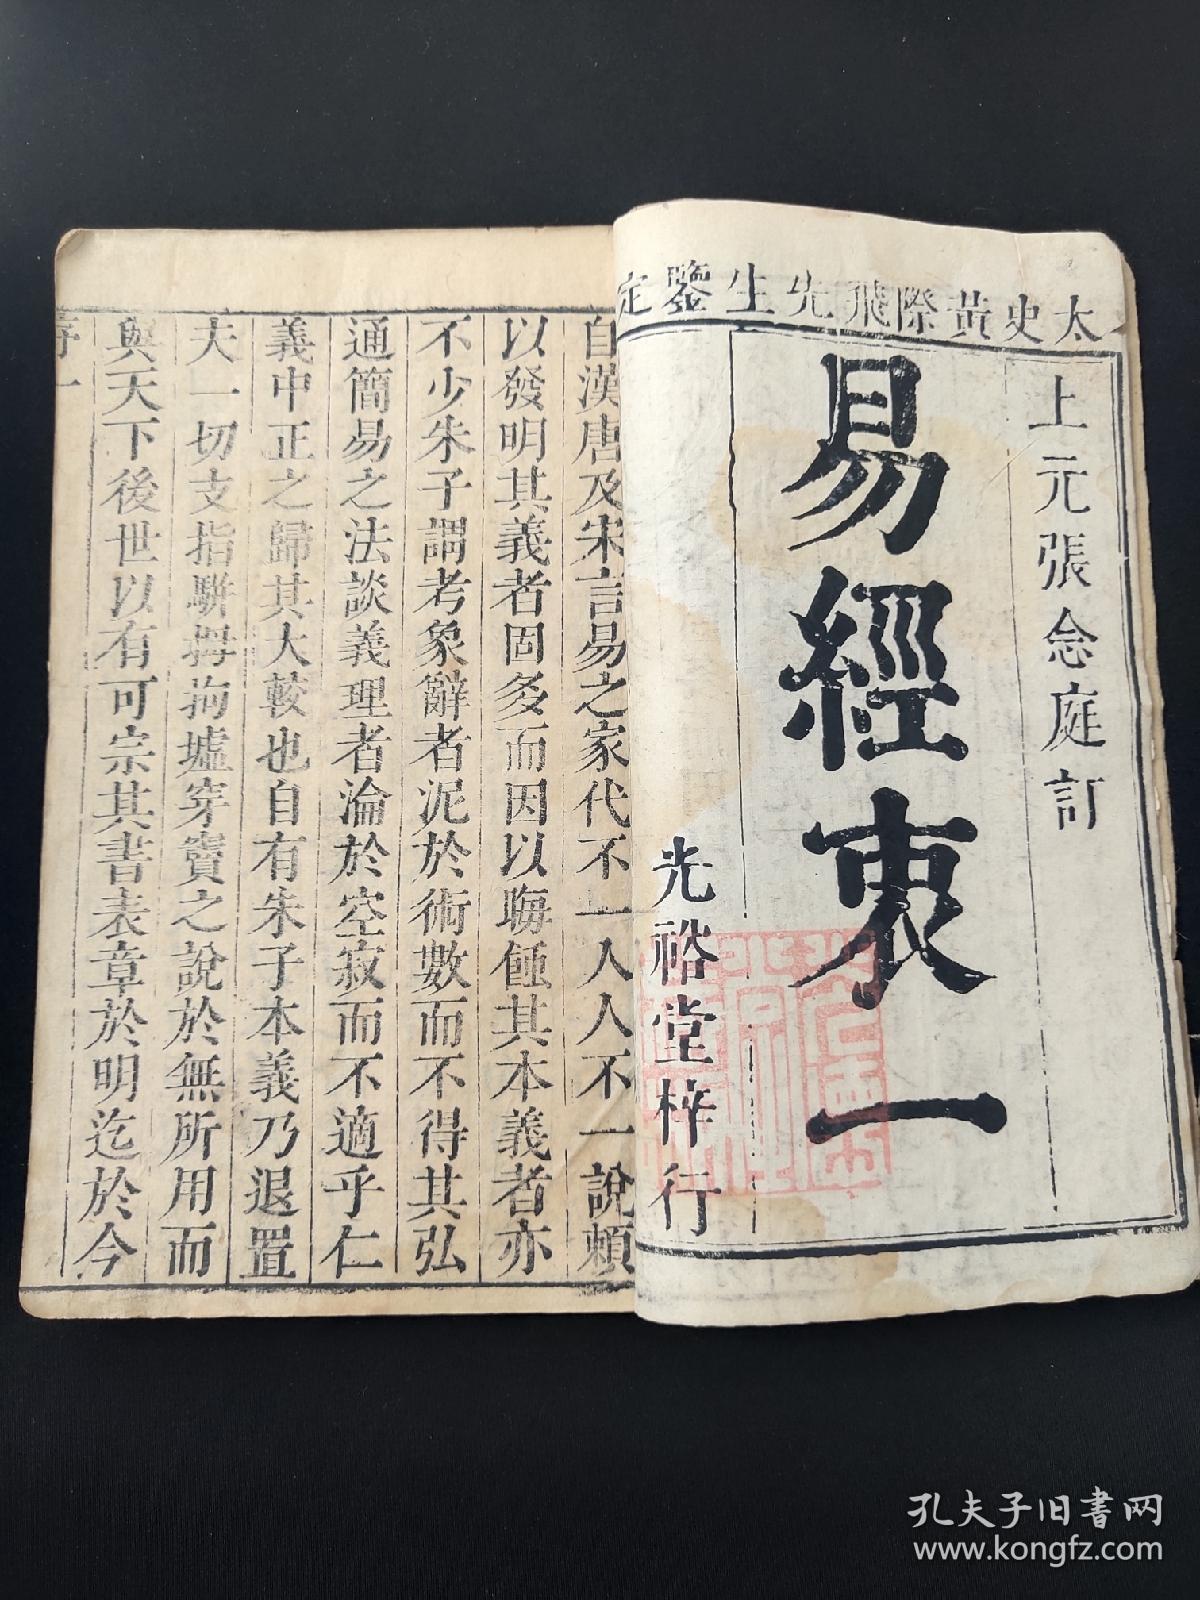 太史黃際飛先生鑒定
上元張念庭訂
易經衷一
光裕堂梓行
自漢唐及宋言易之家代不一人人不一說頼
以發明其義者固多而因以晦僅其本義者亦
不少朱子謂考象辭者泥於術數而不得其弘
通簡易之法談義理者淪於空寂而不適乎仁
義中正之歸其大較也自有朱子本義乃退置
夫一切支指駢拇拘墟穿竇之說於無所用而
與天下後世以有可宗其書表章於明迄於今
序一
孔夫子旧书网
www.kongfz.com